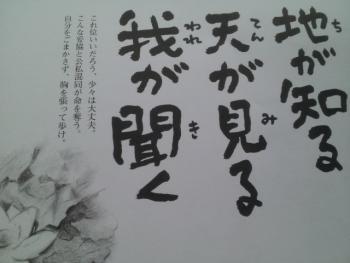 地が知る
天が見る
我が聞く
これ位いいだろう、少々は大丈夫。
こんな妥協と公私混同が命を奪う。
自分をごまかさず、胸を張って歩け。